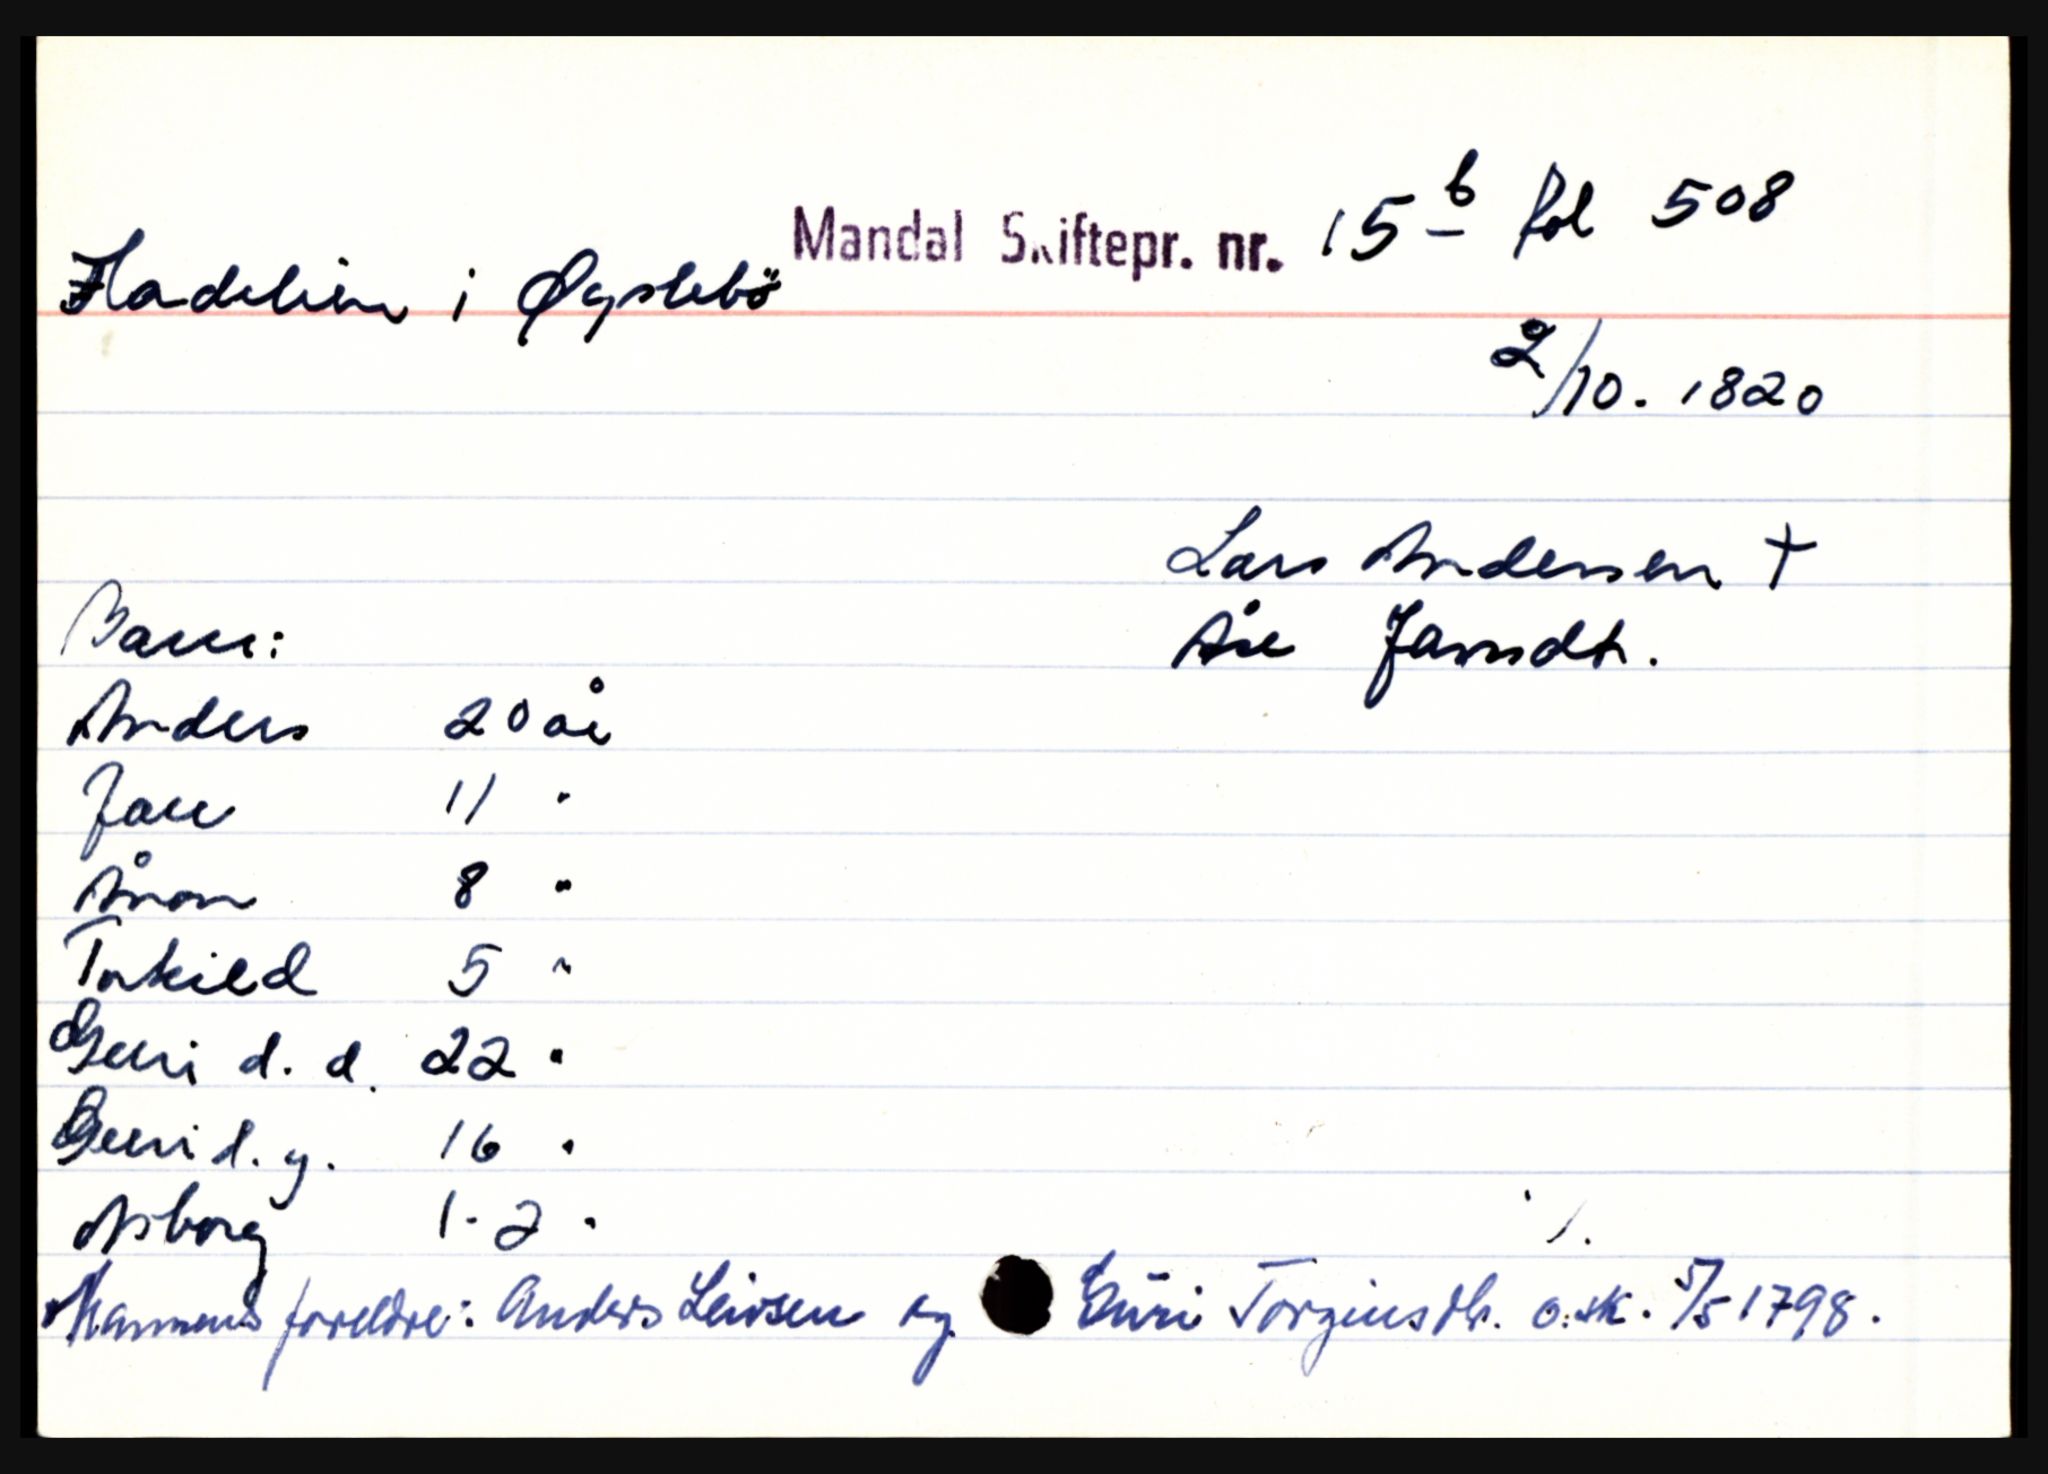 Mandal Skiftepr. nr. 15 b fol 508
Fladelien i Øyslebö
2/10. 1820
Lars Andersen †
Åse Jansdtr.
Barn:
Anders 20 år
Jan 11 "
Ånon 8 "
Torkild 5 "
Guri d. d. 22 "
Guri d. y. 16 "
Asborg 1-2 "
Mannens foreldre: Anders Leivsen og Guri Torgiusdtr. o. sk. 5/5 1798.